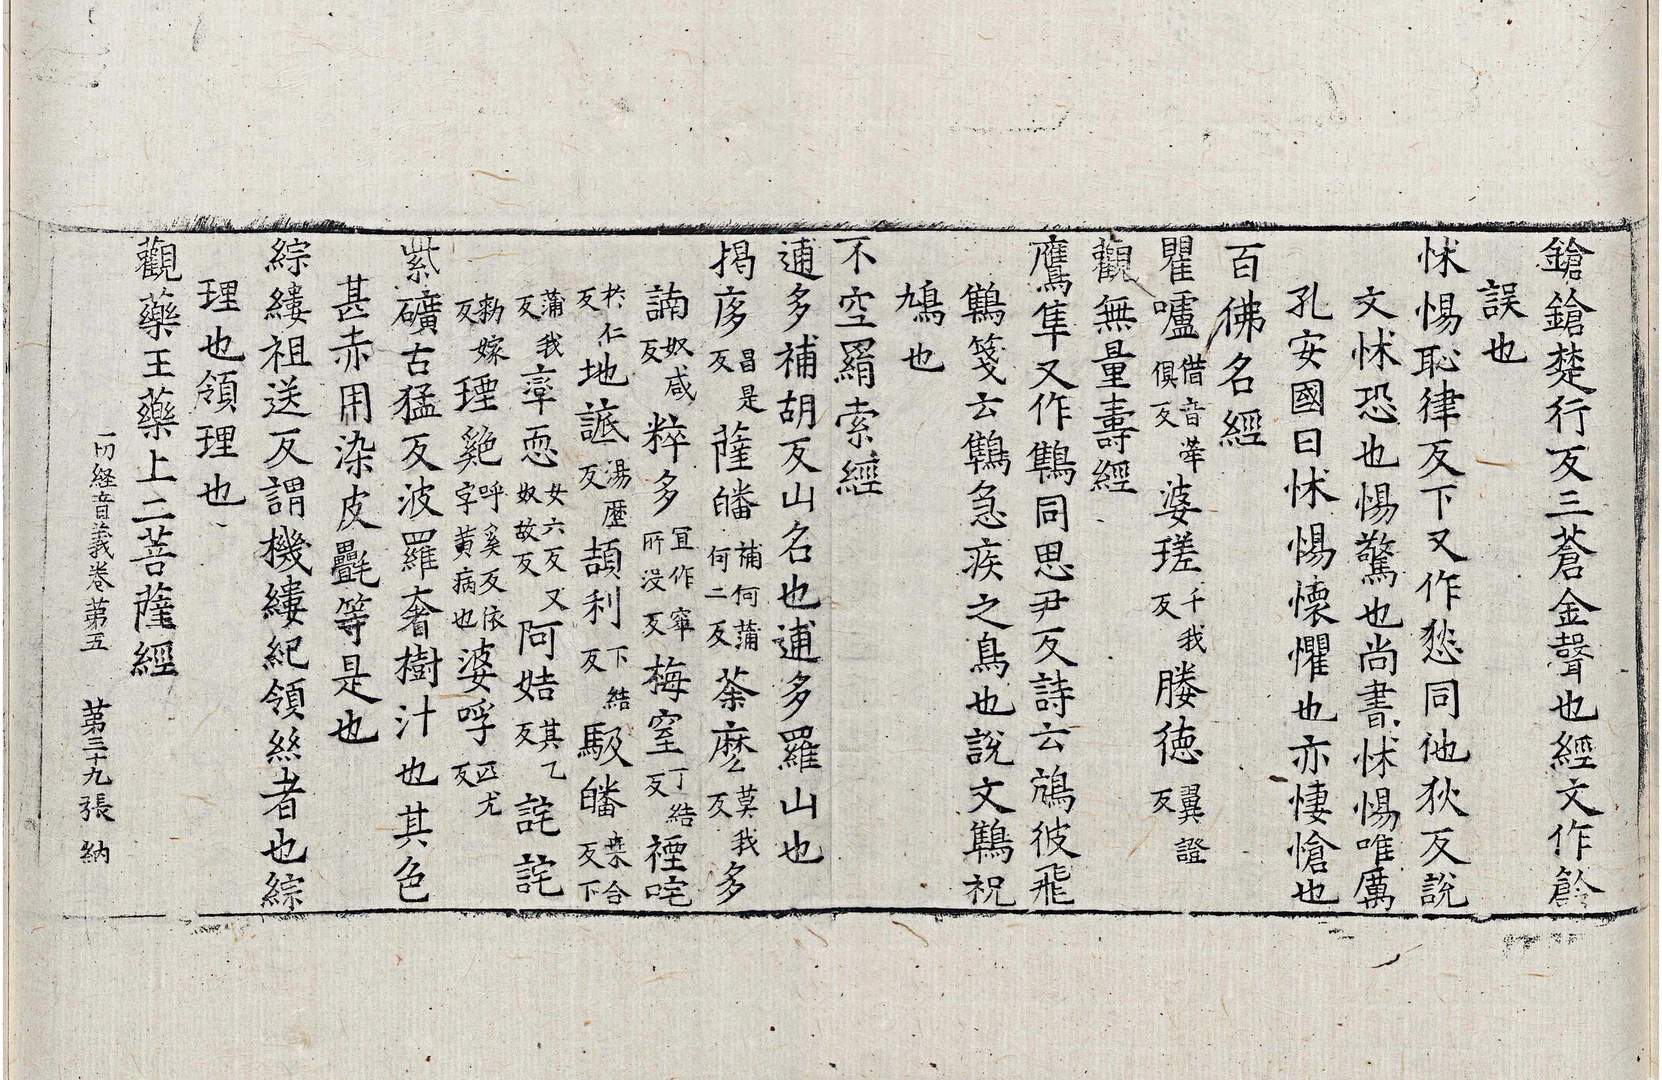 鎗鎗楚行反三蒼金聲也經文作
誤也
怵惕恥律反下又作愁同他狄反說
文怵恐也惕驚也尚書怵惕唯厲
孔安國曰怵惕懷懼也亦悽愴也
百佛名經
瞿嚧借音輂俱反婆瑳千我反賸徳翼證反
觀無量壽經
鷹隼又作鶽同思尹反詩云鴥彼飛
鶽箋云鶽急疾之鳥也說文鶽祝
鳩也
不空羂索經
逋多補胡反山名也逋多羅山也
掲厐昌是反薩皤補何蒲何二反荼麽莫我反多
諵奴咸反粹多冝作窣所没反梅窒丁結反禋咤
扵仁反地謕湯歴反頡利下結反馺皤桒合反下
蒲我反㝈恧女六反又奴故反阿姞其乙反詫詫
勑嫁反瑾鷄呼奚反依字黄病也婆呼匹尤反
紫礦古猛反波羅奢樹汁也其色
甚赤用染皮氎等是也
綜縷祖送反謂機縷紀領絲者也綜
理也領理也
觀藥王藥上二菩薩經
一切経音義卷第五　第三十九張　納